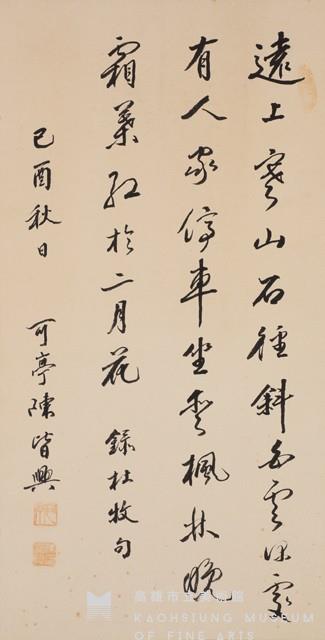 遠上寒山石徑斜白雲深處
有人家停車坐愛楓林晚
霜葉紅於二月花 錄杜牧句
己酉秋日 可亭陳皆興
高雄市立美術館
KAOHSIUNG MUSEUM
OF FINE ARTS